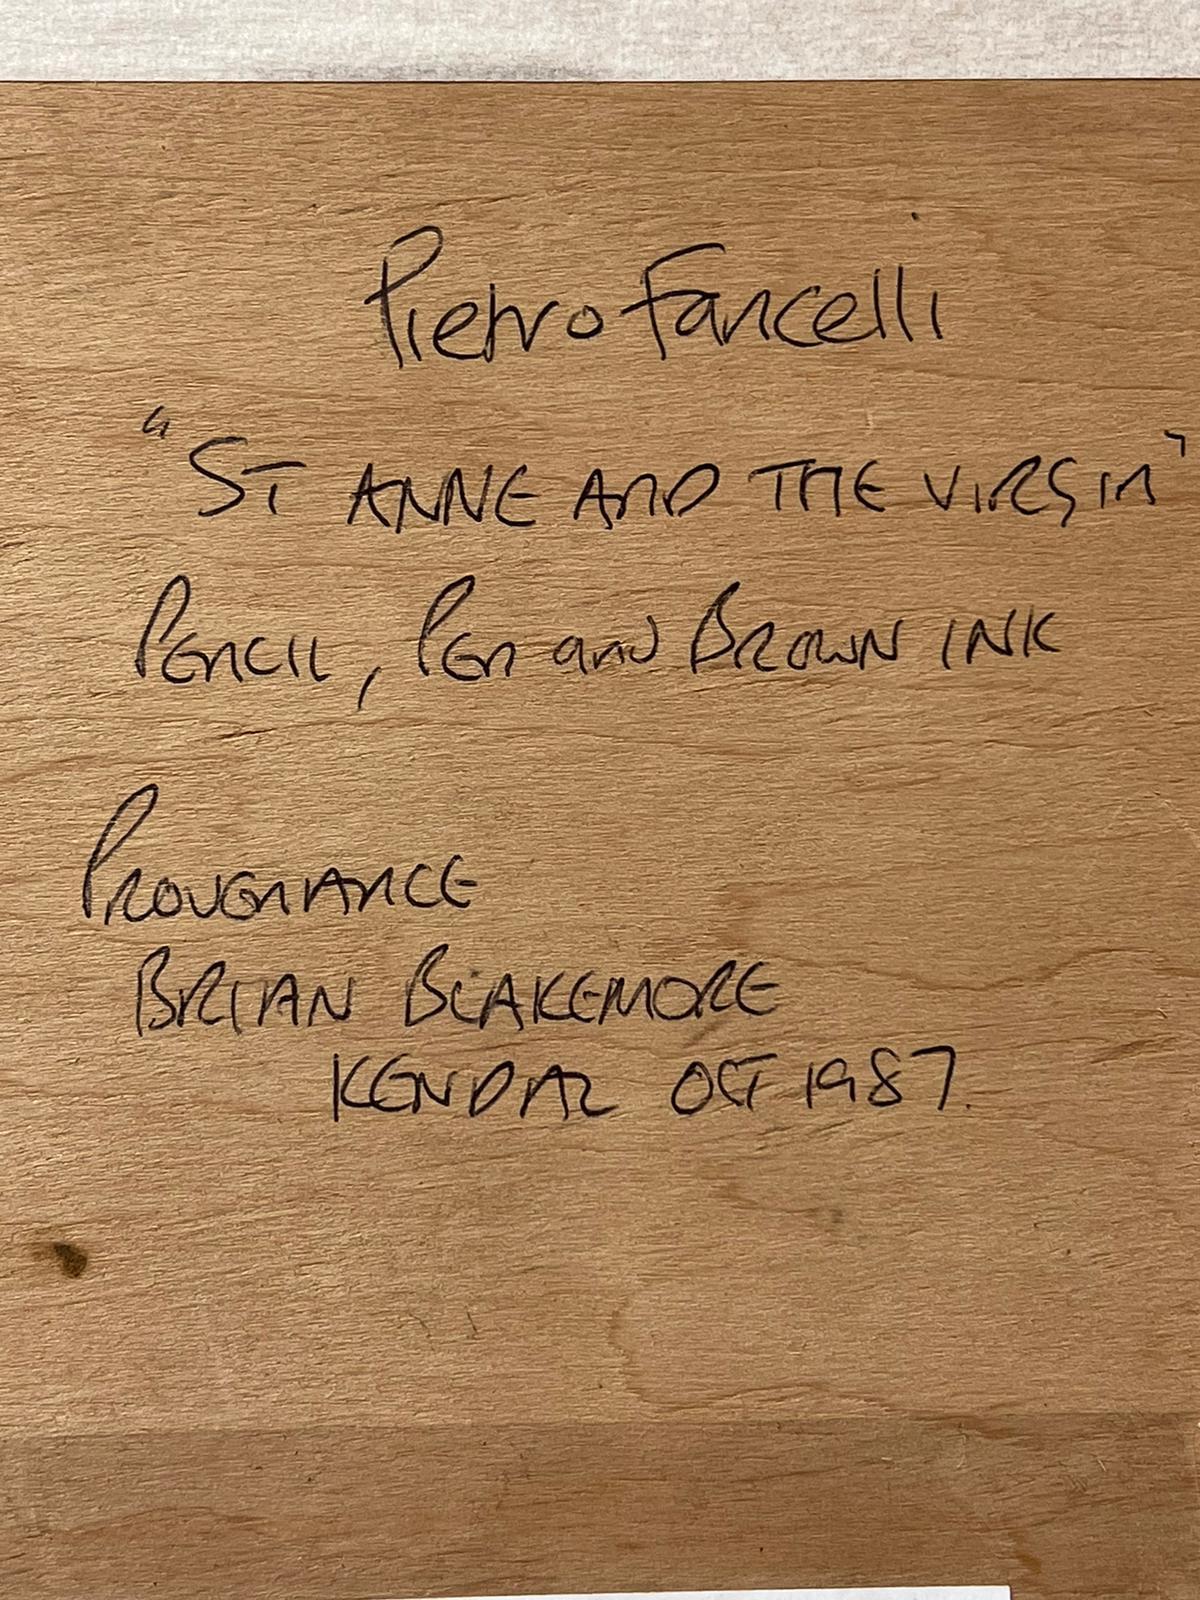 Pietro Fancelli
"ST ANNE AND THE VIRGIN"
PENCIL, PEN and BROWN INK
PROVENANCE
BRIAN BLAKEMORE
KENDAL OCT 1987.